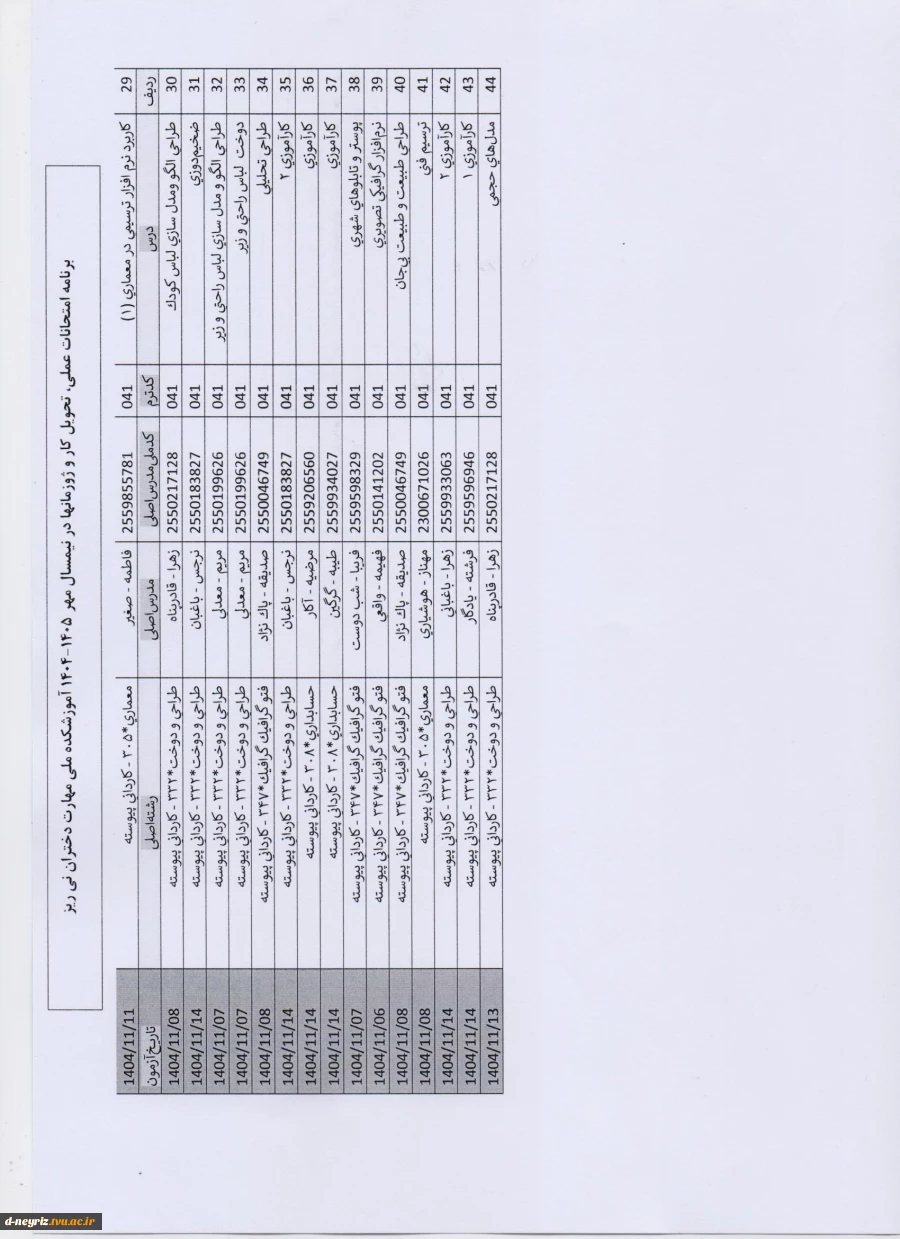 برنامه امتحانات عملی، تحویل کار و ژوژمانها در نیمسال مهر ۱۴۰۵-۱۴۰۴ آموزشکده ملی مهارت دختران نی ریز
29 کاربرد نرم افزار ترسیمی در معماري (۱) 041 2559855781 فاطمه - صغیر معماري*۳۰۵ - کاردانی پیوسته 1404/11/11
ردیف درس کدترم کدملی مدرس اصلی مدرس اصلی رشته اصلی تاریخ آزمون
30 طراحی الگو ومدل سازي لباس کودك 041 2550217128 زهرا - قادرپناه طراحی و دوخت*۳۳۲ - کاردانی پیوسته 1404/11/08
31 ضخیم‌دوزي 041 2550183827 نرجس - باغبان طراحی و دوخت*۳۳۲ - کاردانی پیوسته 1404/11/14
32 طراحی الگو و مدل سازي لباس راحتی و زیر 041 2550199626 مریم - معدلی طراحی و دوخت*۳۳۲ - کاردانی پیوسته 1404/11/07
33 دوخت لباس راحتی و زیر 041 2550199626 مریم - معدلی طراحی و دوخت*۳۳۲ - کاردانی پیوسته 1404/11/07
34 طراحی تحلیلی 041 2550046749 صدیقه - پاك نژاد فتو گرافیك گرافیك*۳۴۷ - کاردانی پیوسته 1404/11/08
35 کارآموزي ۲ 041 2550183827 نرجس - باغبان طراحی و دوخت*۳۳۲ - کاردانی پیوسته 1404/11/14
36 کارآموزي 041 2559206560 مرضیه - آکار حسابداري*۳۰۸ - کاردانی پیوسته 1404/11/14
37 کارآموزي 041 2559934027 طیبه - گرگین حسابداري*۳۰۸ - کاردانی پیوسته 1404/11/14
38 پوستر و تابلوهاي شهري 041 2559598329 فریبا - شب دوست فتو گرافیك گرافیك*۳۴۷ - کاردانی پیوسته 1404/11/07
39 نرم‌افزار گرافیکی تصویري 041 2550141202 فهیمه - واقعی فتو گرافیك گرافیك*۳۴۷ - کاردانی پیوسته 1404/11/06
40 طراحی طبیعت و طبیعت بی‌جان 041 2550046749 صدیقه - پاك نژاد فتو گرافیك گرافیك*۳۴۷ - کاردانی پیوسته 1404/11/08
41 ترسیم فنی 041 2300671026 مهناز - هوشیاري معماري*۳۰۵ - کاردانی پیوسته 1404/11/08
42 کارآموزي ۲ 041 2559933063 زهرا - باغبانی طراحی و دوخت*۳۳۲ - کاردانی پیوسته 1404/11/14
43 کارآموزي ۱ 041 2559596946 فرشته - یادگار طراحی و دوخت*۳۳۲ - کاردانی پیوسته 1404/11/14
44 مدل‌هاي حجمی 041 2550217128 زهرا - قادرپناه طراحی و دوخت*۳۳۲ - کاردانی پیوسته 1404/11/13
d-neyriz.tvu.ac.ir